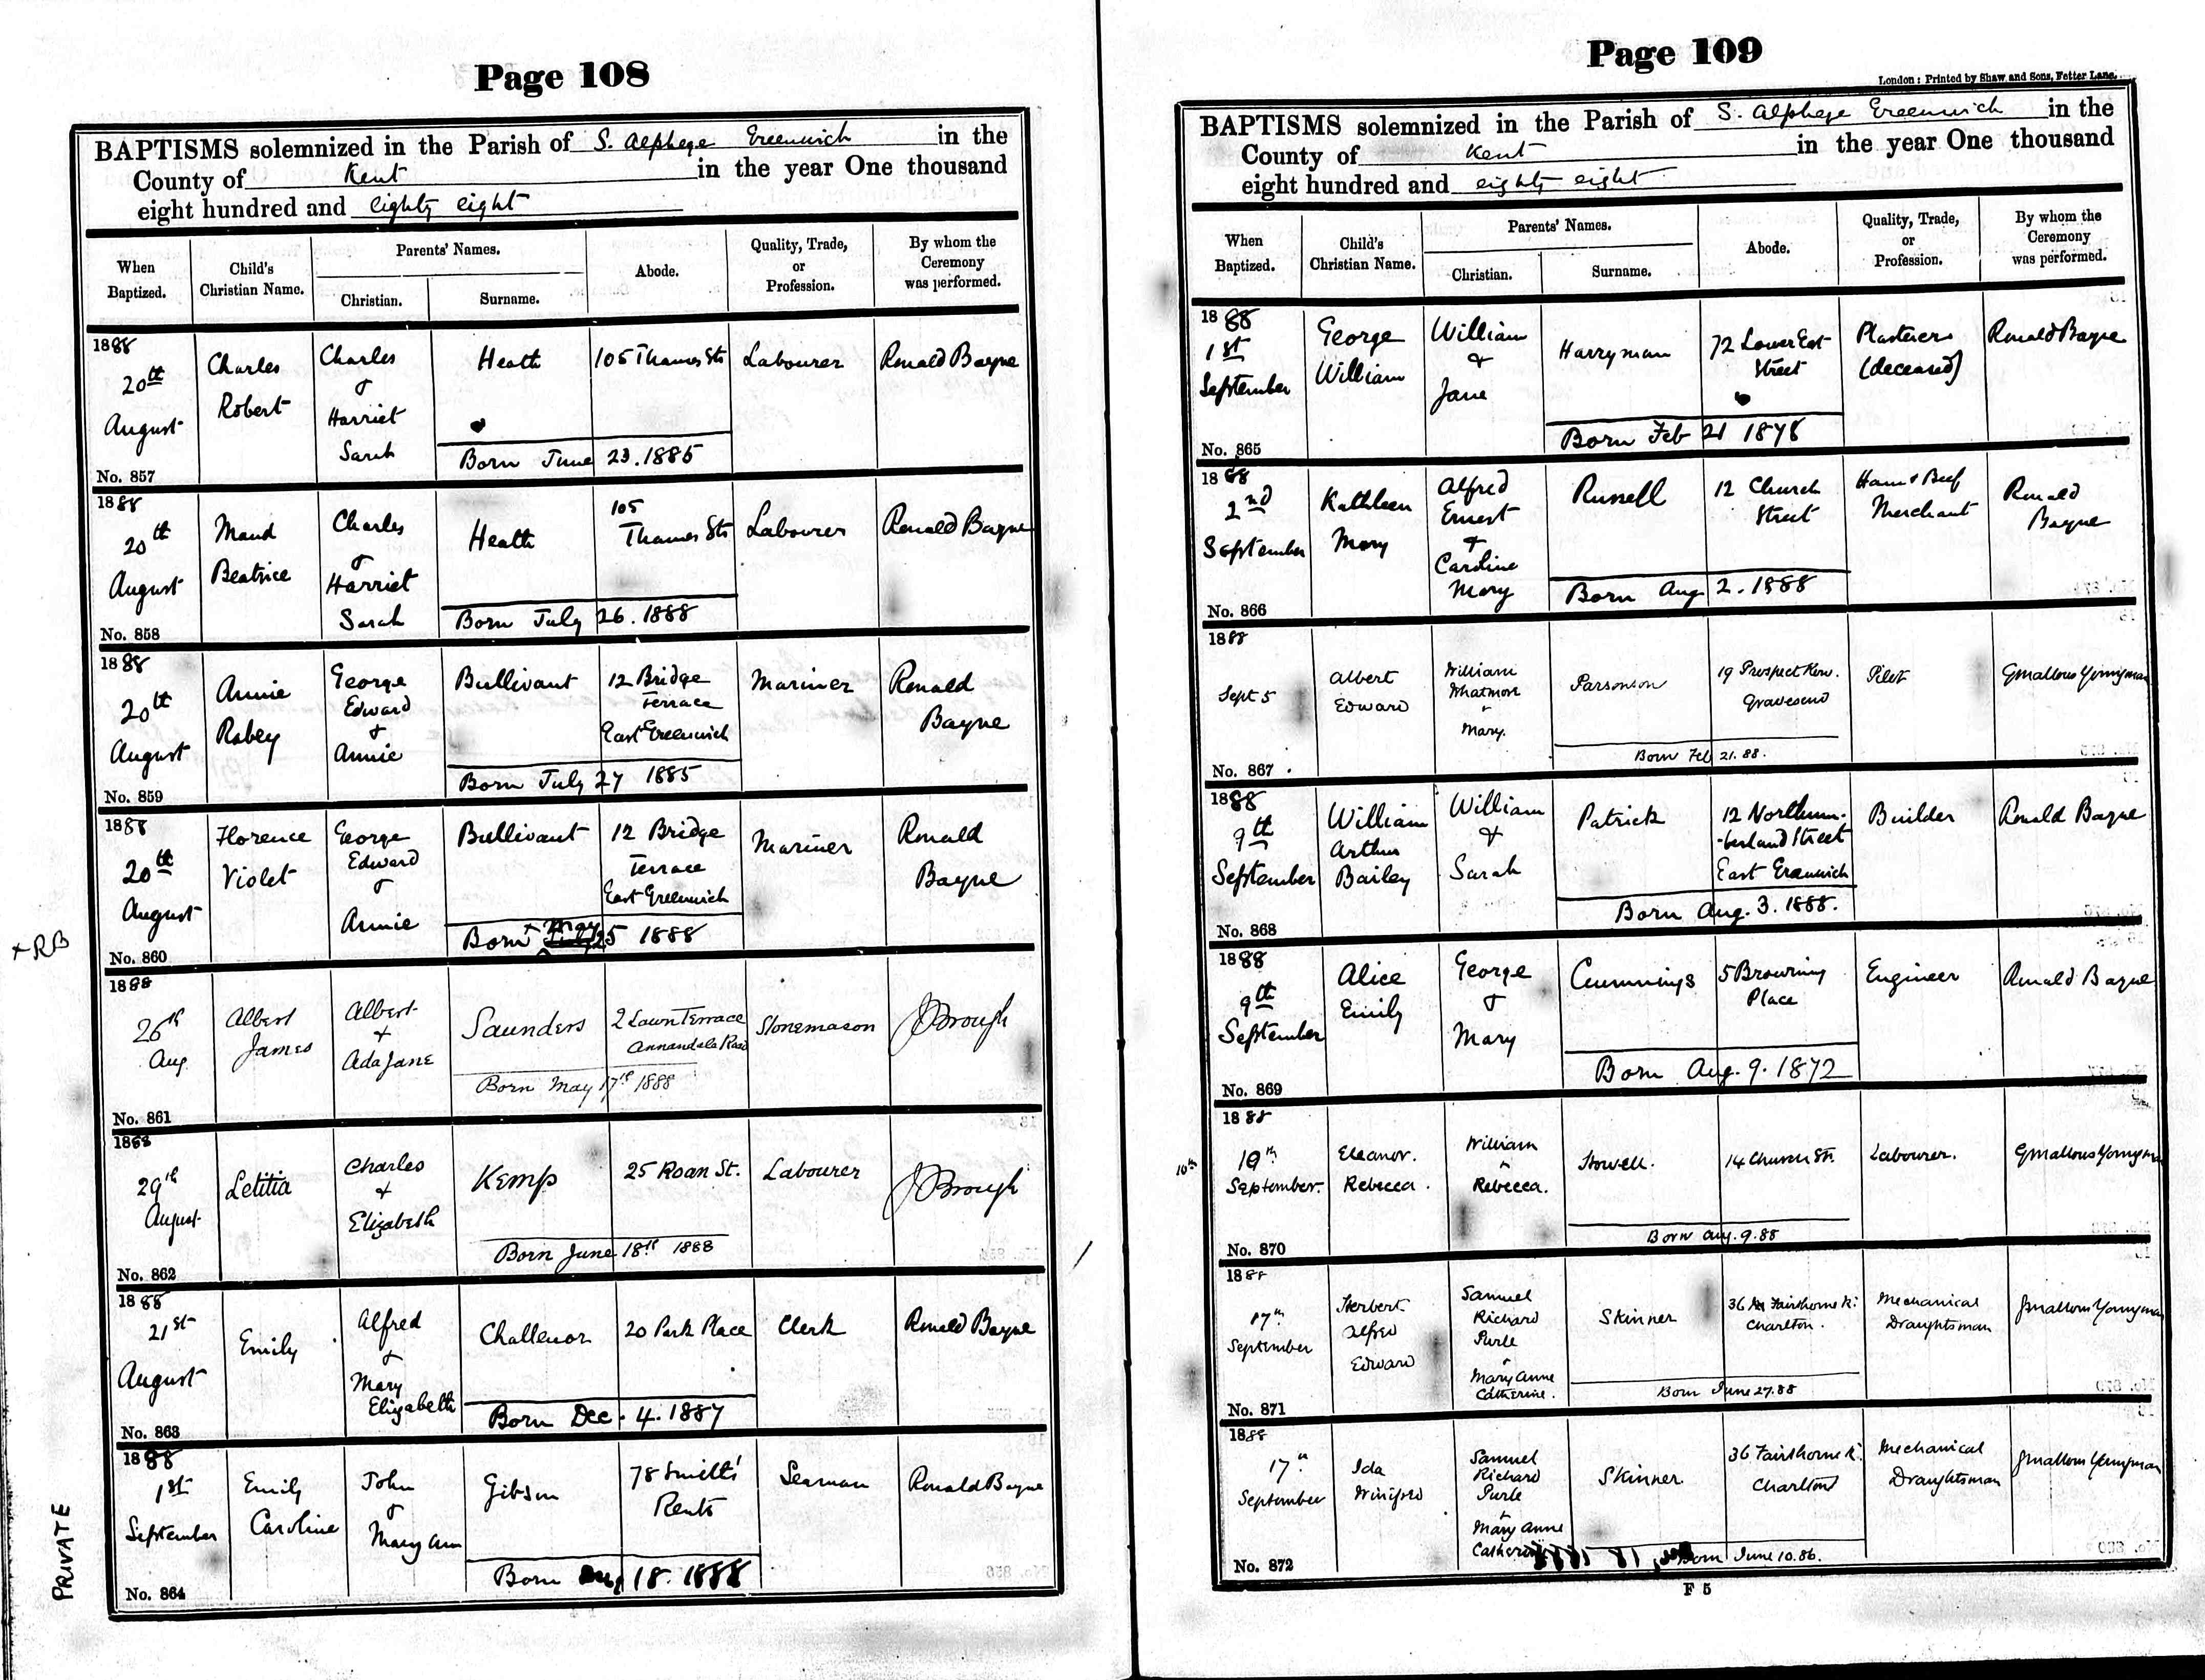 Page 108
BAPTISMS solemnized in the Parish of S. Alphege Greenwich in the
County of Kent in the year One thousand
eight hundred and eighty eight
When Baptized. Child's Christian Name. Parents' Names. Christian. Surname. Abode. Quality, Trade, or Profession. By whom the Ceremony was performed.
1888
20th August
Charles Robert
Charles & Harriet Sarah
Heath
105 Thames St
Labourer
Ronald Bayne
Born June 23. 1885
No. 857
1888
20th August
Maud Beatrice
Charles & Harriet Sarah
Heath
105 Thames St
Labourer
Ronald Bayne
Born July 26. 1888
No. 858
1888
20th August
Annie Robey
George Edward & Annie
Bullivant
12 Bridge Terrace East Greenwich
Mariner
Ronald Bayne
Born July 27 1885
No. 859
1888
20th August
Florence Violet
George Edward & Annie
Bullivant
12 Bridge Terrace East Greenwich
Mariner
Ronald Bayne
Born + May 25 1888
+ RB
No. 860
1888
26th Aug
Albert James
Albert & Ada Jane
Saunders
2 Lawn Terrace Annandale Road
Stonemason
J Brough
Born May 17th 1888
No. 861
1888
29th August
Letitia
Charles & Elizabeth
Kemp
25 Roan St.
Labourer
J Brough
Born June 18th 1888
No. 862
1888
21st August
Emily
Alfred & Mary Elizabeth
Challenor
20 Park Place
Clerk
Ronald Bayne
Born Dec. 4. 1887
No. 863
PRIVATE
1888
1st September
Emily Caroline
John & Mary Ann
Gibson
78 Smith's Rents
Seaman
Ronald Bayne
Born Aug 18. 1888
No. 864
Page 109
London: Printed by Shaw and Sons, Fetter Lane.
BAPTISMS solemnized in the Parish of S. Alphege Greenwich in the
County of Kent in the year One thousand
eight hundred and eighty eight
When Baptized. Child's Christian Name. Parents' Names. Christian. Surname. Abode. Quality, Trade, or Profession. By whom the Ceremony was performed.
1888
1st September
George William
William & Jane
Harryman
72 Lower East Street
Plasterer (deceased)
Ronald Bayne
Born Feb 21 1878
No. 865
1888
2nd September
Kathleen Mary
Alfred Ernest & Caroline Mary
Russell
12 Church Street
Ham & Beef Merchant
Ronald Bayne
Born Aug 2. 1888
No. 866
1888
Sept 5
Albert Edward
William Whatmore & Mary.
Parsonson
19 Prospect Row. Gravesend
Pilot
G Mallows Youngman
Born Feb 21. 88.
No. 867
1888
9th September
William Arthur Bailey
William & Sarah
Patrick
12 Northum-berland Street East Greenwich
Builder
Ronald Bayne
Born Aug. 3. 1888.
No. 868
1888
9th September
Alice Emily
George & Mary
Cummings
5 Browning Place
Engineer
Ronald Bayne
Born Aug. 9. 1872
No. 869
10th
1888
19th September.
Eleanor. Rebecca.
William & Rebecca.
Howell.
14 Church St.
Labourer.
G Mallows Youngman
Born Aug. 9. 88
No. 870
1888
17th September
Herbert Alfred Edward
Samuel Richard Purle & Mary Anne Catherine.
Skinner
36 Fairthorne Rd. Charlton.
Mechanical Draughtsman
G Mallows Youngman
Born June 27. 88
No. 871
1888
17th September
Ida Winifred
Samuel Richard Purle & Mary Anne Catherine
Skinner
36 Fairthorne Rd. Charlton
Mechanical Draughtsman
G Mallows Youngman
Born June 10. 86.
No. 872
F 5